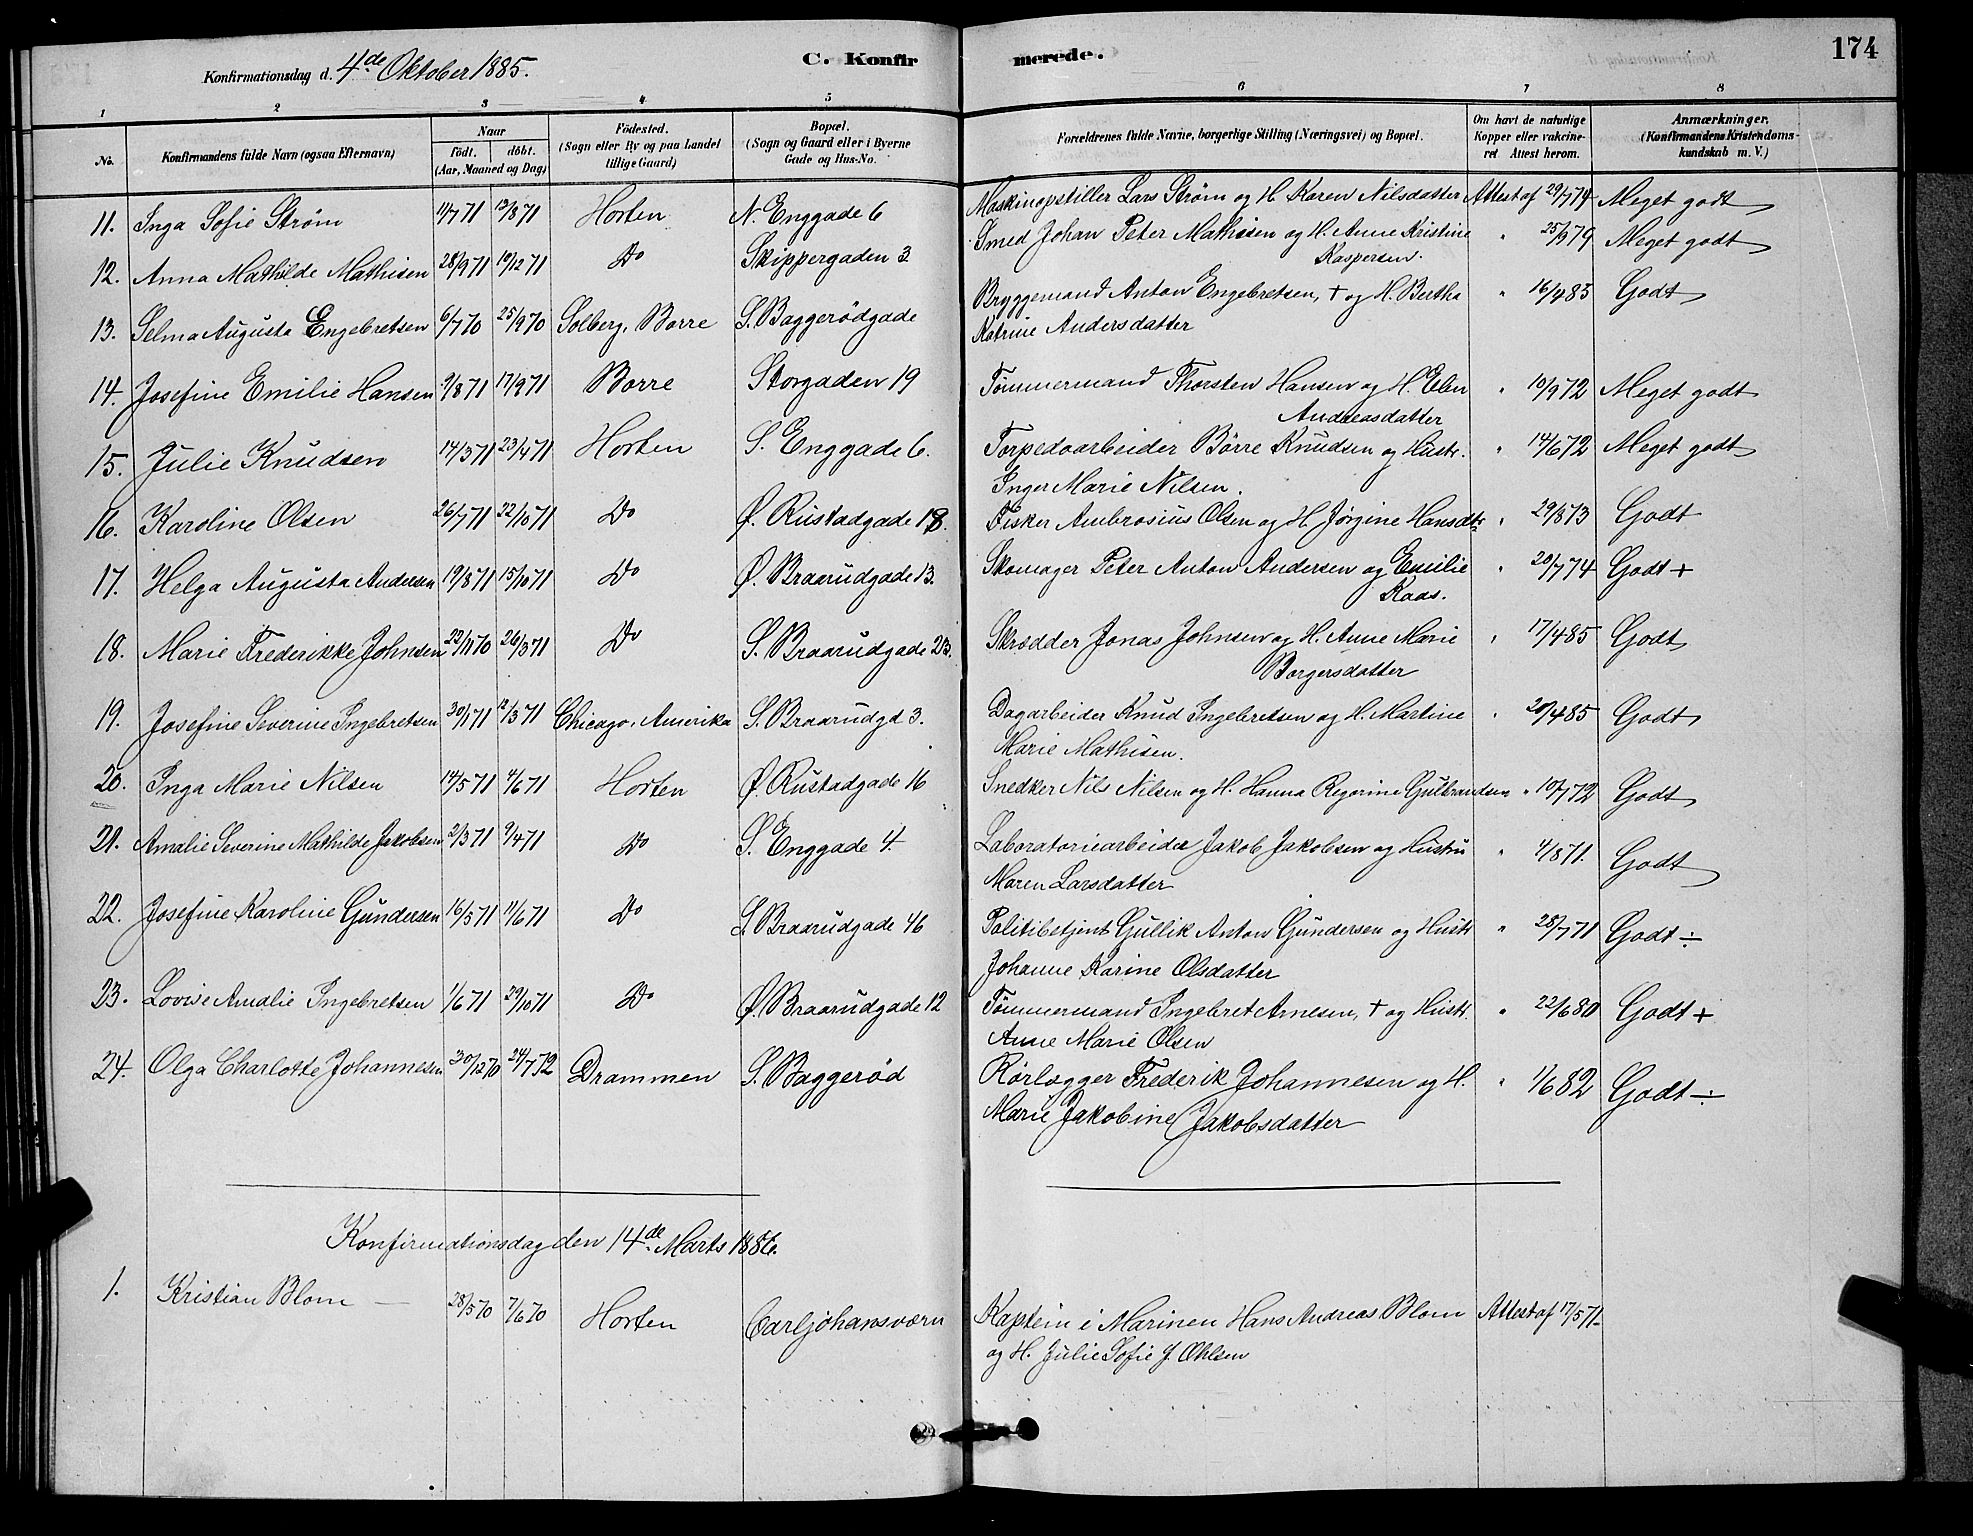 Konfirmationsdag d. 4de Oktober 1885.
C. Konfirmerede.
174
1 2 3 4 5 6 7 8
No.
Konfirmandens fulde Navn (ogsaa Efternavn)
Naar
Födt. döbt.
(Aar, Maaned og Dag)
Födested.
(Sogn eller By og paa Landet
tillige Gaard)
Bopæl.
(Sogn og Gaard eller i Byerne
Gade og Hus-No.
Forældrenes fulde Navne, borgerlige Stilling (Næringsvei) og Bopæl.
Om havt de naturlige
Kopper eller vakcine-
ret Attest herom.
Anmærkninger.
(Konfirmandens Kristendoms-
kundskab m. V.)
11. Inga Sofie Strøm 11/7 71 13/8 71 Horten N. Enggade 6 Maskinopstiller Lars Strøm og H. Karen Nilsdatter Attest af 29/7 74 Meget godt
12. Anna Mathilde Mathisen 28/9 71 10/12 71 Do Skippergaden 3 Smed Johan Peter Mathisen og H. Anne Kristine " 25/9 79 Meget godt
Kaspersen.
13. Selma Augusta Engebretsen 6/7 70 25/9 70 Solberg, Borre S. Baggerödgade Bryggemand Anton Engebretsen, + og H. Bertha " 16/4 83 Godt
Katrine Andersdatter
14. Josefine Emilie Hansen 9/8 71 17/9 71 Borre Storgaden 19 Tömmermand Thorsten Hansen og H. Elen " 10/9 72 Meget godt
Andreasdatter
15. Julie Knudsen 14/3 71 23/4 71 Horten S. Enggade 6. Torpedoarbeider Börre Knudsen og Hustr. " 14/6 72 Meget godt
Inger Marie Nilsen.
16. Karoline Olsen 26/7 71 22/10 71 Do Ø. Rustadgade 18. Fisker Ambrosius Olsen og H. Jörgine Hansdtr " 29/8 73 Godt
17. Helga Augusta Andersen 19/8 71 15/10 71 Do Ø. Braarudgade 13. Skomager Peter Anton Andersen og Emilie " 20/7 74 Godt +
Raas.
18. Marie Frederikke Johnsen 22/11 70 26/3 71 Do S. Braarudgade 23. Skrædder Jonas Johnsen og H. Anne Marie " 17/4 85 Godt
Borgersdatter
19. Josefine Severine Ingebretsen 30/1 71 12/3 71 Chicago, Amerika S. Braarudgd 3. Dagarbeider Knud Ingebretsen og H. Martine " 20/4 85 Godt
Marie Mathisen.
20. Inga Marie Nilsen 14/5 71 4/6 71 Horten Ø. Rustadgade 16 Snedker Nils Nilsen og H. Hanna Regorine Gulbrandsen " 10/7 72 Godt
21. Amalie Severine Mathilde Jakobsen 2/3 71 9/4 71 Do S. Enggade 4. Laboratoriearbeider Jakob Jakobsen og Hustru " 4/8 71. Godt
Maren Larsdatter
22. Josefine Karoline Gundersen 16/5 71 11/6 71 Do S. Braarudgade 46 Politibetjent Gullik Anton Gundersen og Hustr " 28/7 71 Godt ÷
Johanne Karine Olsdatter
23. Lovise Amalie Ingebretsen 1/6 71 29/10 71 Do Ø. Braarudgade 12 Tömmermand Ingebret Arnesen, + og Hustr. " 22/6 80 Godt +
Anne Marie Olsen
24. Olga Charlotte Johannesen 30/12 70 24/7 72 Drammen S. Baggerød Rörlægger Frederik Johannesen og H. " 1/6 82 Godt ÷
Marie Jakobine Jakobsdatter
Konfirmationsdag den 14de Marts 1886.
1. Kristian Blom 28/5 70 7/6 70 Horten Carljohansværn Kaptein i Marinen Hans Andreas Blom Attest af 17/5 71
og H. Julie Sofie J. Ohlsen